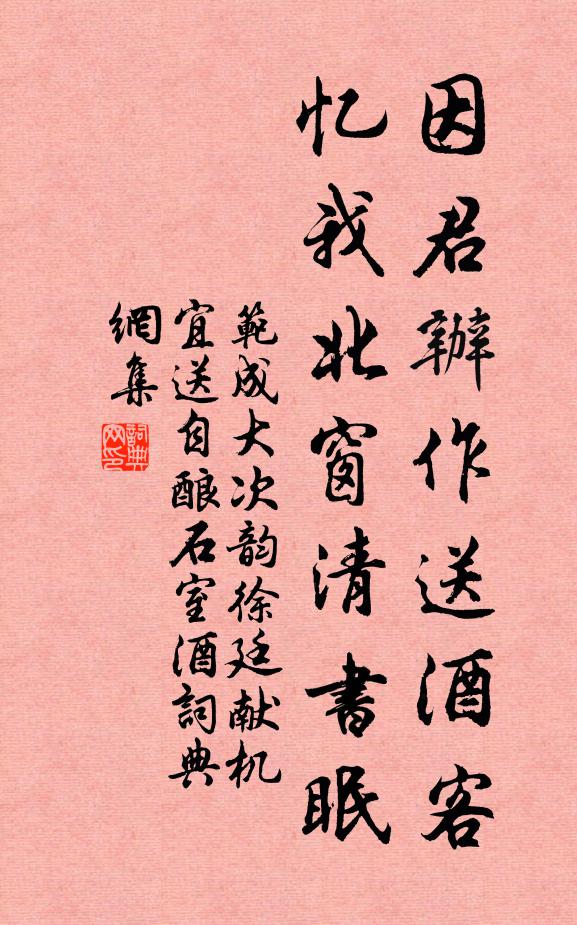 因君辦作送酒客
忆我北窗清書眠
範成大次韵徐廷献机
宜送自酿石室酒詞典
網集
詞典網印